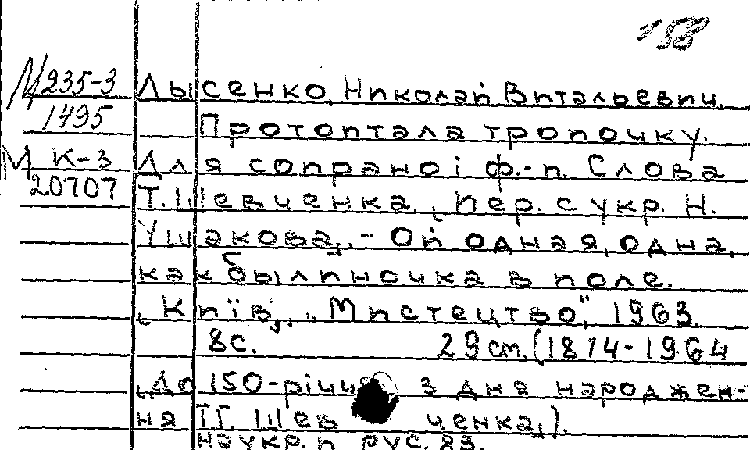 158
М 235-3 Лысенко, Николай Витальевич.
1495 Протоптала тропочку.
М К-3 Для сопрано і ф.-п. Слова
20707 Т. Шевченка, пер. с укр. Н.
Ушакова. - Ой одна я, одна,
как былиночка в поле.
Київ, "Мистецтво", 1963.
8с. 29 ст. (1814-1964
До 150-річчя з дня народжен-
ня Т.Г. Шевченка).
На укр. и рус. яз.